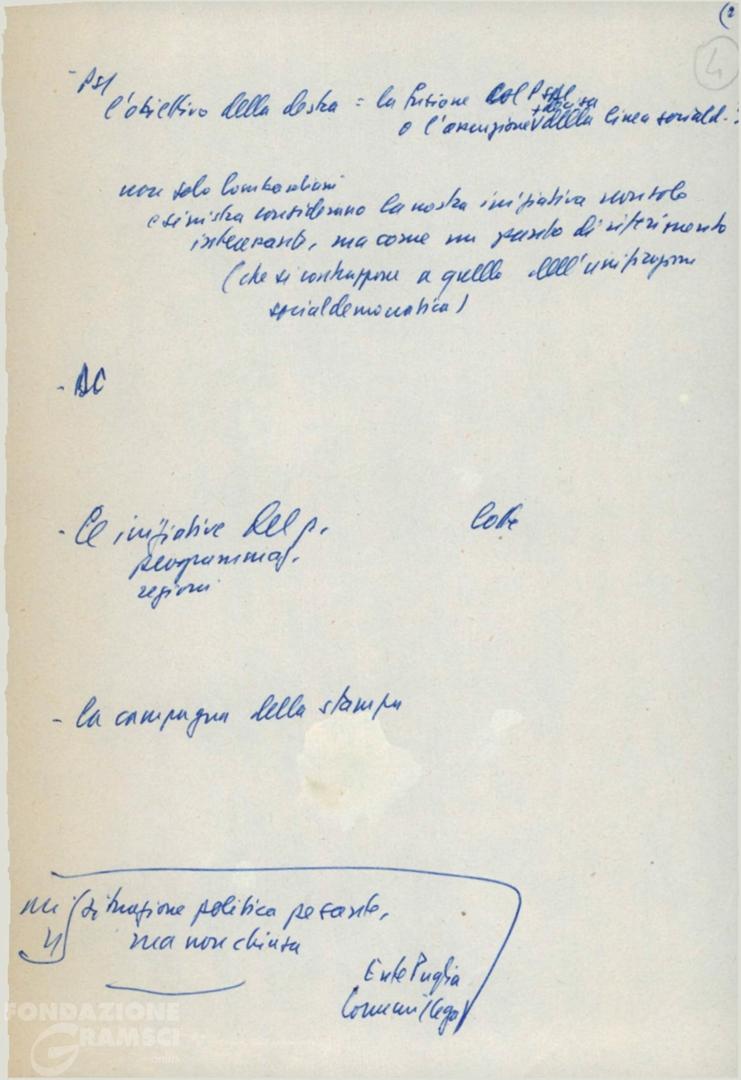 (2
4
- PSI
l'obiettivo della destra = la fusione col PSDI
+ decisa
o l'assunzione della linea sociald.
non solo lombardiani
e sinistra considerano la nostra iniziativa non solo
interessante, ma come un punto di riferimento
(che si contrappone a quello dell'unificazione
socialdemocratica)
- DC
- Le iniziative del p. lotte
programmaz.
regioni
- la campagna della stampa
situazione politica pesante,
ma non chiusa
Ente Puglia
Comuni (lega)
FONDAZIONE
GRAMSCI
onlus